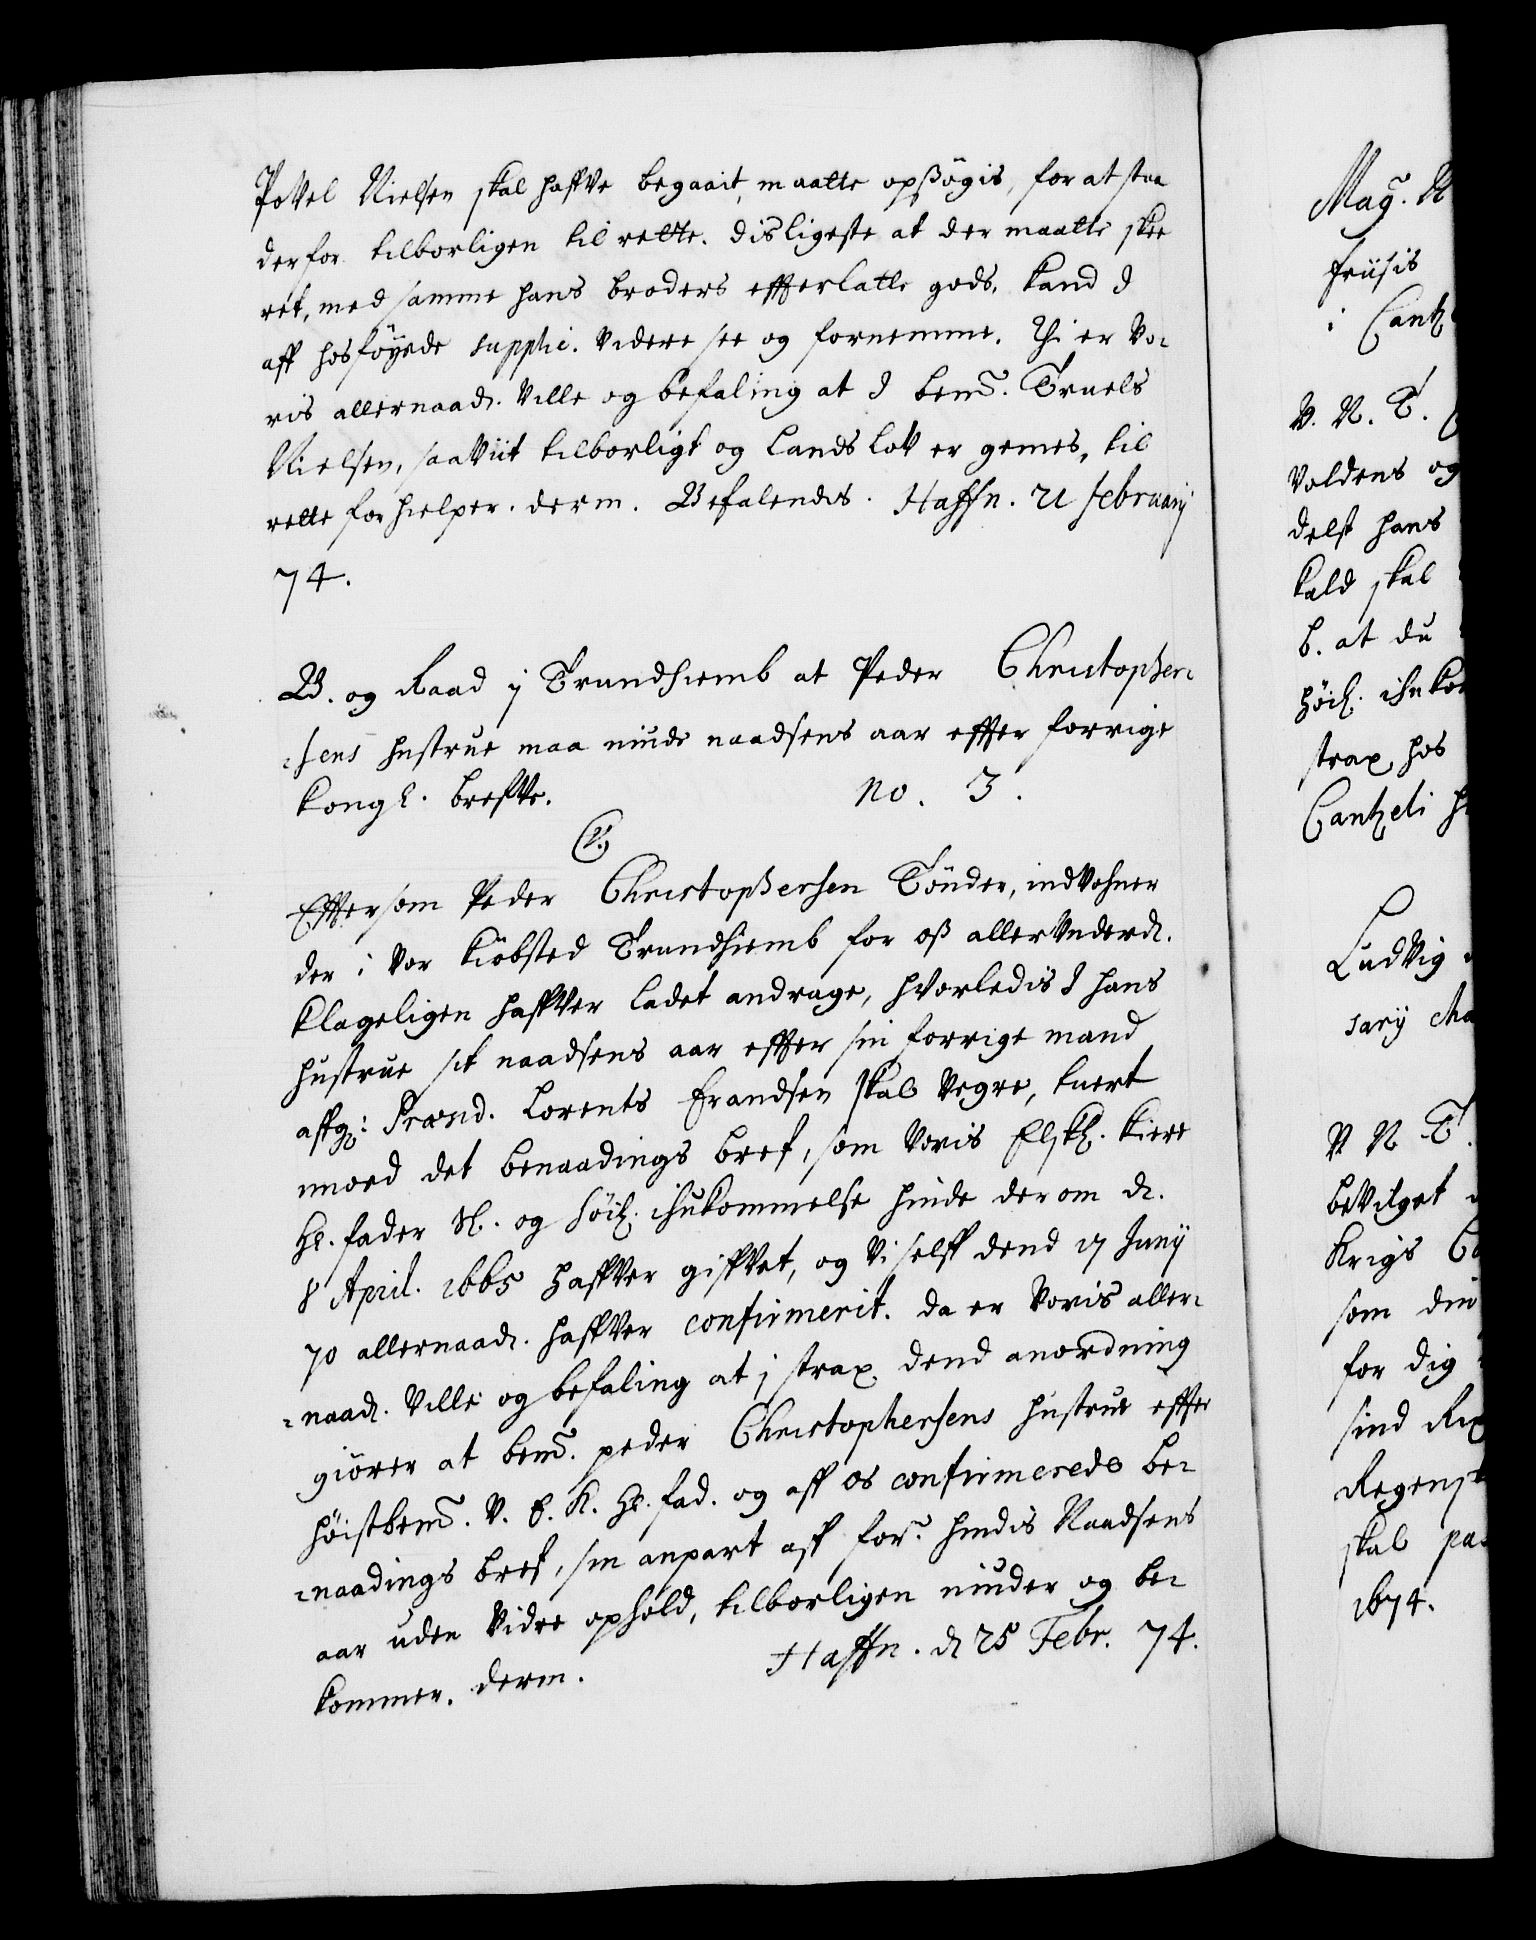 Povel Nielsen skal haffve begaait, maatte opsøgis, for at staa
derfor tilborligen til rette. disligeste at der maatte skee
ret, med samme hans broders effterlatte gods, kand I
aff hosføyede supplic. videre see og fornemme. Thi er Vo-
ris allernaadr. Ville og befaling at I bemt. Truels
Nielsen, saaviit tilborligt og Lands Lov er gemes, til
rette forhielper. derm. Befalendis. Haffn. 21 februarij
74.
B. og Raad j Trundhiemb at Peder Christopher-
-sens hustrue maa niude naadsens aar effter forrige
kongl. breffve. no. 3.
C5.
Effter som Peder Christophersen Tønder, indvohner
der i vor kiöbsted Trundhiemb for oß allerunderd.
klageligen haffver ladet andrage, hvorledis I hans
hustrue sit naadsens aar effter sin forrige mand
affg: Præsid. Lorents Frandsen skal vegre, tuert
imoed det benaadings bref, som voris Elskl. kiere
Hr. fader Sl. og höil. ihukommelse hinde derom d.
8 April. 1665 haffver giffvet, og Vi selff dend 17 Junij
70 allernaadr. haffver confirmerit. da er Voris aller-
-naadr. Ville og befaling at j strax dend anordning
giører at bemt. peder Christophersens hustrue effter
høistbemt. V. E. K. Hr. fad. og aff os confirmerede be-
-naadings bref, sin anpart aff forne. hindis Naadsens
aar uden vidre ophold, tilborligen niuder og be-
kommer. derm. Haffn. d 25 Febr. 74.
Mag. N
friisis
i Cantz
V. N. T.
Voldens og
delst hans
kald skal
b. at du
höil. ihukom
strax hos
Cantzeli h
Ludvig
sarij Ma
V N T.
bevilget
Krigs Co
som din
for dig
sind Rix
Regensk
skal paa
1674.